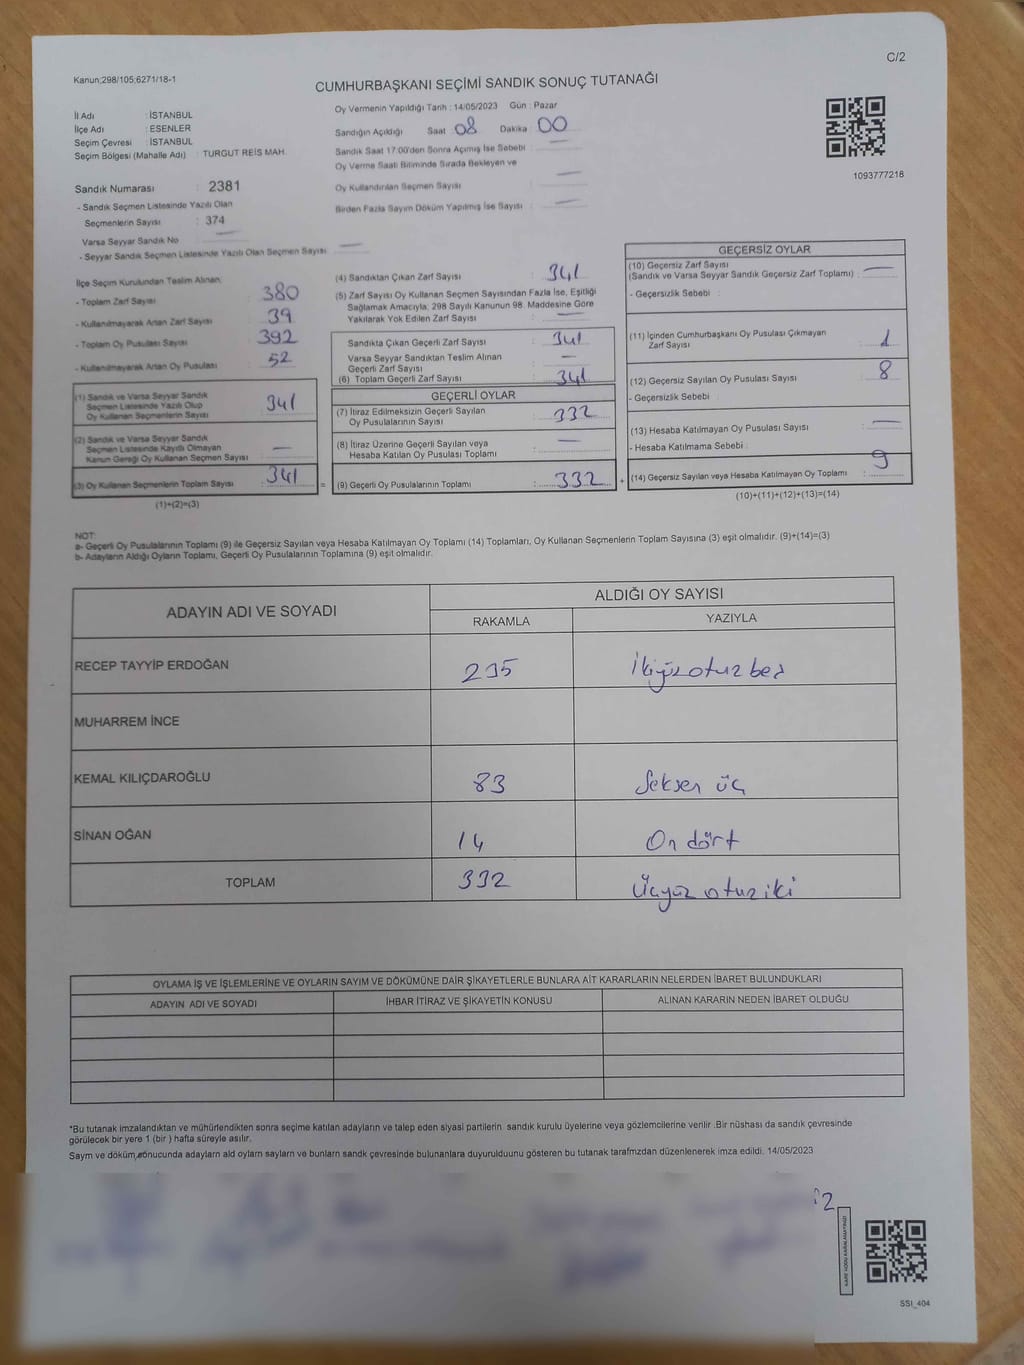 C/2
Kanun;298/105;6271/18-1
CUMHURBAŞKANI SEÇİMİ SANDIK SONUÇ TUTANAĞI
İl Adı : İSTANBUL
İlçe Adı : ESENLER
Seçim Çevresi : İSTANBUL
Seçim Bölgesi (Mahalle Adı) : TURGUT REİS MAH.
Sandık Numarası : 2381
- Sandık Seçmen Listesinde Yazılı Olan
Seçmenlerin Sayısı : 374
Varsa Seyyar Sandık No —
- Seyyar Sandık Seçmen Listesinde Yazılı Olan Seçmen Sayısı —
Oy Vermenin Yapıldığı Tarih : 14/05/2023 Gün : Pazar
Sandığın Açıldığı Saat 08 Dakika 00
Sandık Saat 17:00'den Sonra Açımış İse Sebebi : —
Oy Verme Saati Bitiminde Sırada Bekleyen ve
Oy Kullandırılan Seçmen Sayısı : —
Birden Fazla Sayım Döküm Yapılmış İse Sayısı : —
1093777218
İlçe Seçim Kurulundan Teslim Alınan:
- Toplam Zarf Sayısı : 380
- Kullanılmayarak Artan Zarf Sayısı : 39
- Toplam Oy Pusulası Sayısı : 392
- Kullanılmayarak Artan Oy Pusulası : 52
(1) Sandık ve Varsa Seyyar Sandık
Seçmen Listesinde Yazılı Olup
Oy Kullanan Seçmenlerin Sayısı : 341
(2) Sandık ve Varsa Seyyar Sandık
Seçmen Listesinde Kayıtlı Olmayan
Kanun Gereği Oy Kullanan Seçmen Sayısı : —
(3) Oy Kullanan Seçmenlerin Toplam Sayısı : 341
(1)+(2)=(3)
(4) Sandıktan Çıkan Zarf Sayısı : 341
(5) Zarf Sayısı Oy Kullanan Seçmen Sayısından Fazla İse, Eşitliği
Sağlamak Amacıyla, 298 Sayılı Kanunun 98. Maddesine Göre
Yakılarak Yok Edilen Zarf Sayısı : —
Sandıkta Çıkan Geçerli Zarf Sayısı : 341
Varsa Seyyar Sandıktan Teslim Alınan
Geçerli Zarf Sayısı : —
(6) Toplam Geçerli Zarf Sayısı : 341
GEÇERLİ OYLAR
(7) İtiraz Edilmeksizin Geçerli Sayılan
Oy Pusulalarının Sayısı : 332
(8) İtiraz Üzerine Geçerli Sayılan veya
Hesaba Katılan Oy Pusulası Toplamı : —
= (9) Geçerli Oy Pusulalarının Toplamı : 332 +
GEÇERSİZ OYLAR
(10) Geçersiz Zarf Sayısı
(Sandık ve Varsa Seyyar Sandık Geçersiz Zarf Toplamı) : —
- Geçersizlik Sebebi :
(11) İçinden Cumhurbaşkanı Oy Pusulası Çıkmayan
Zarf Sayısı : 1
(12) Geçersiz Sayılan Oy Pusulası Sayısı : 8
- Geçersizlik Sebebi :
(13) Hesaba Katılmayan Oy Pusulası Sayısı : —
- Hesaba Katılmama Sebebi :
(14) Geçersiz Sayılan veya Hesaba Katılmayan Oy Toplamı : 9
(10)+(11)+(12)+(13)=(14)
NOT:
a- Geçerli Oy Pusulalarının Toplamı (9) ile Geçersiz Sayılan veya Hesaba Katılmayan Oy Toplamı (14) Toplamları, Oy Kullanan Seçmenlerin Toplam Sayısına (3) eşit olmalıdır. (9)+(14)=(3)
b- Adayların Aldığı Oyların Toplamı, Geçerli Oy Pusulalarının Toplamına (9) eşit olmalıdır.
ADAYIN ADI VE SOYADI ALDIĞI OY SAYISI
RAKAMLA YAZIYLA
RECEP TAYYİP ERDOĞAN 235 İkiyüz otuz beş
MUHARREM İNCE
KEMAL KILIÇDAROĞLU 83 Seksen üç
SİNAN OĞAN 14 On dört
TOPLAM 332 Üçyüz otuz iki
OYLAMA İŞ VE İŞLEMLERİNE VE OYLARIN SAYIM VE DÖKÜMÜNE DAİR ŞİKAYETLERLE BUNLARA AİT KARARLARIN NELERDEN İBARET BULUNDUKLARI
ADAYIN ADI VE SOYADI İHBAR İTİRAZ VE ŞİKAYETİN KONUSU ALINAN KARARIN NEDEN İBARET OLDUĞU
*Bu tutanak imzalandıktan ve mühürlendikten sonra seçime katılan adayların ve talep eden siyasi partilerin sandık kurulu üyelerine veya gözlemcilerine verilir .Bir nüshası da sandık çevresinde
görülecek bir yere 1 (bir ) hafta süreyle asılır.
Saym ve döküm sonucunda adayların ald oyların sayların ve bunların sandk çevresinde bulunanlara duyurulduunu gösteren bu tutanak tarafmzdan düzenlenerek imza edildi. 14/05/2023
KARE KODU KARALAMAYINIZ!
SSI_404